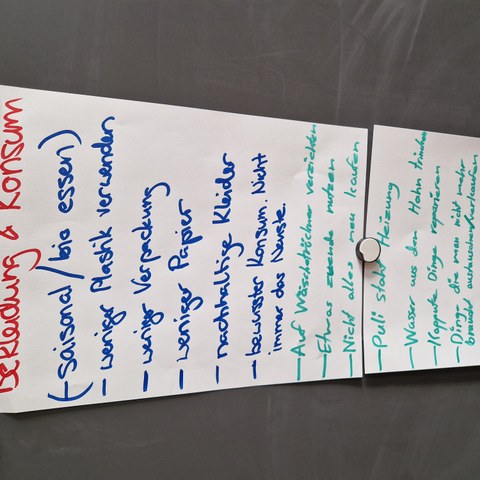 Bekleidung & Konsum
(- saisonal / bio essen)
- weniger Plastik verwenden
- weniger Verpackung
- weniger Papier
- nachhaltige Kleider
- bewusster Konsum. Nicht
immer das Neuste.
- Auf Wäschetrockner verzichten
- Etwas zu ende nutzen
- Nicht alles neu kaufen
- Pulli statt Heizung
- Wasser aus dem Hahn trinken
- Kaputte Dinge reparieren
- Dinge die man nicht mehr
braucht austauschen/verkaufen